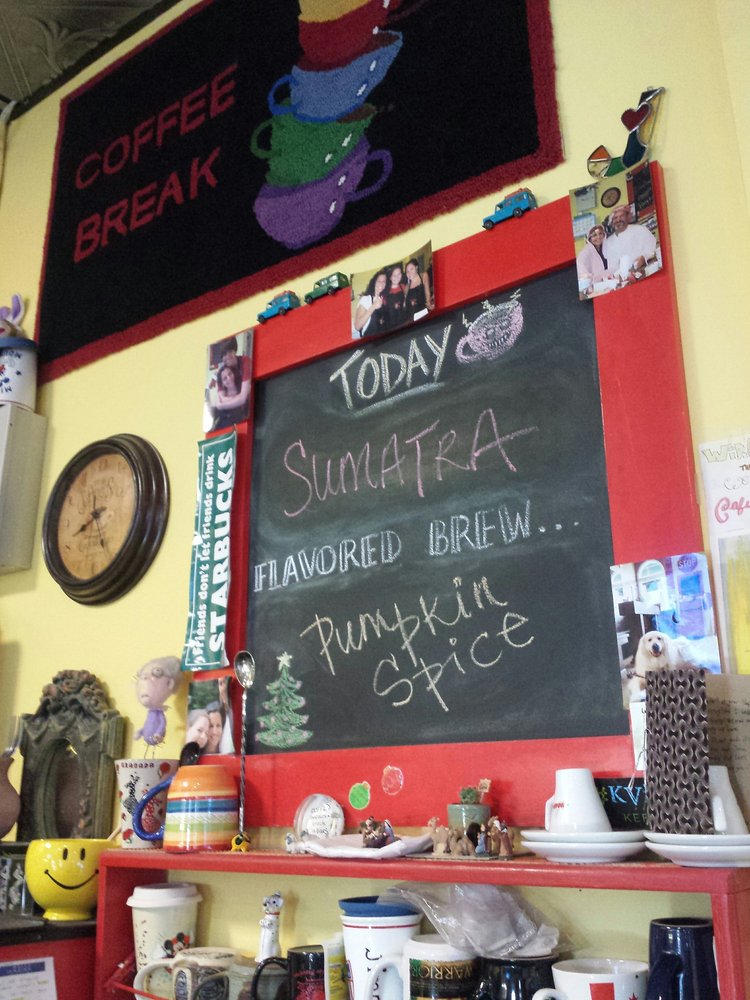 COFFEE
BREAK
TODAY
SUMATRA
FLAVORED BREW...
Pumpkin
Spice
Friends don't let friends drink
STARBUCKS
KV
KEE
WARRIOR